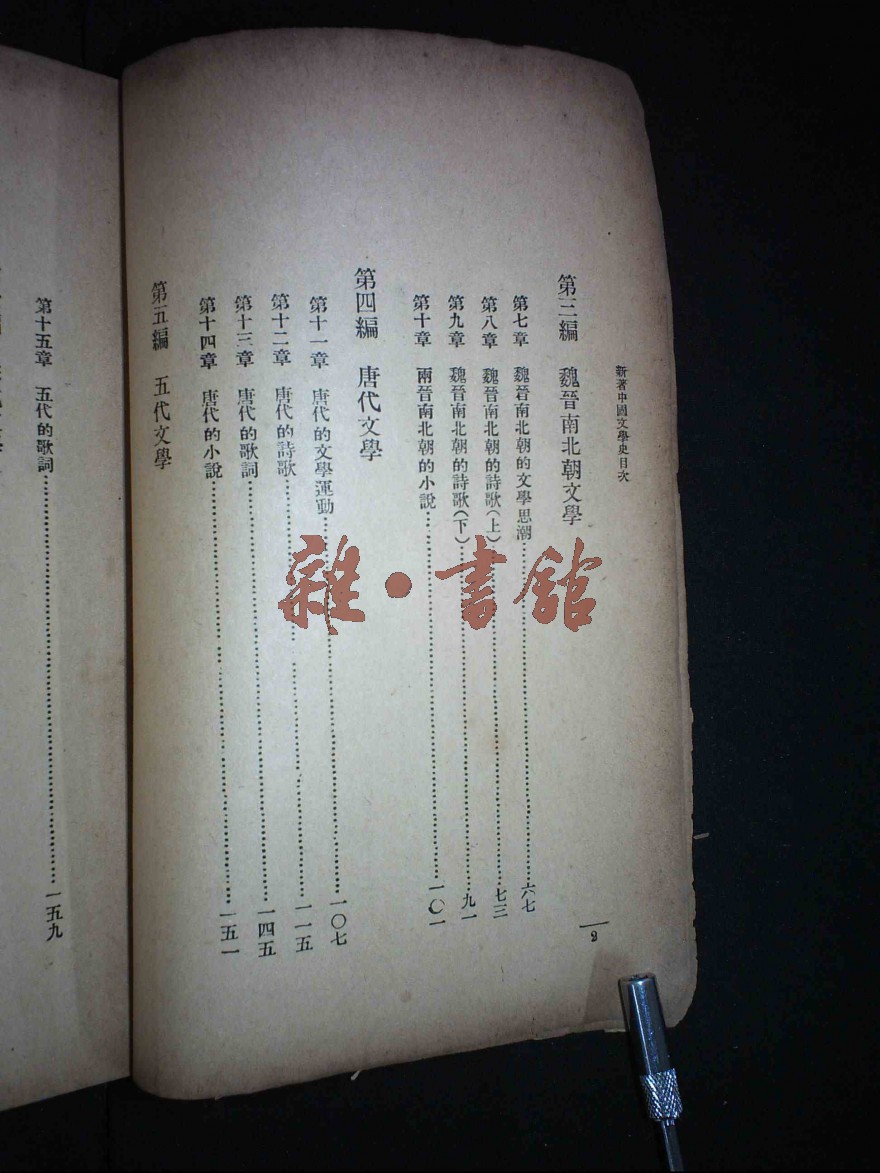 新著中國文學史目次
第三編　魏晉南北朝文學
第七章　魏晉南北朝的文學思潮……六七
第八章　魏晉南北朝的詩歌（上）……七三
第九章　魏晉南北朝的詩歌（下）……九一
第十章　兩晉南北朝的小說……一〇一
第四編　唐代文學
第十一章　唐代的文學運動……一〇七
第十二章　唐代的詩歌……一一五
第十三章　唐代的歌詞……一四五
第十四章　唐代的小說……一五一
第五編　五代文學
2
第十五章　五代的歌詞……一五九
雜·書館